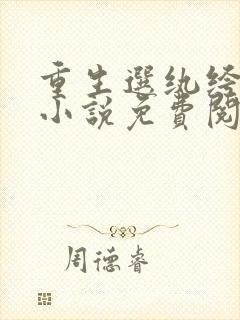 重生選紈绔
小說免費閱
周德睿